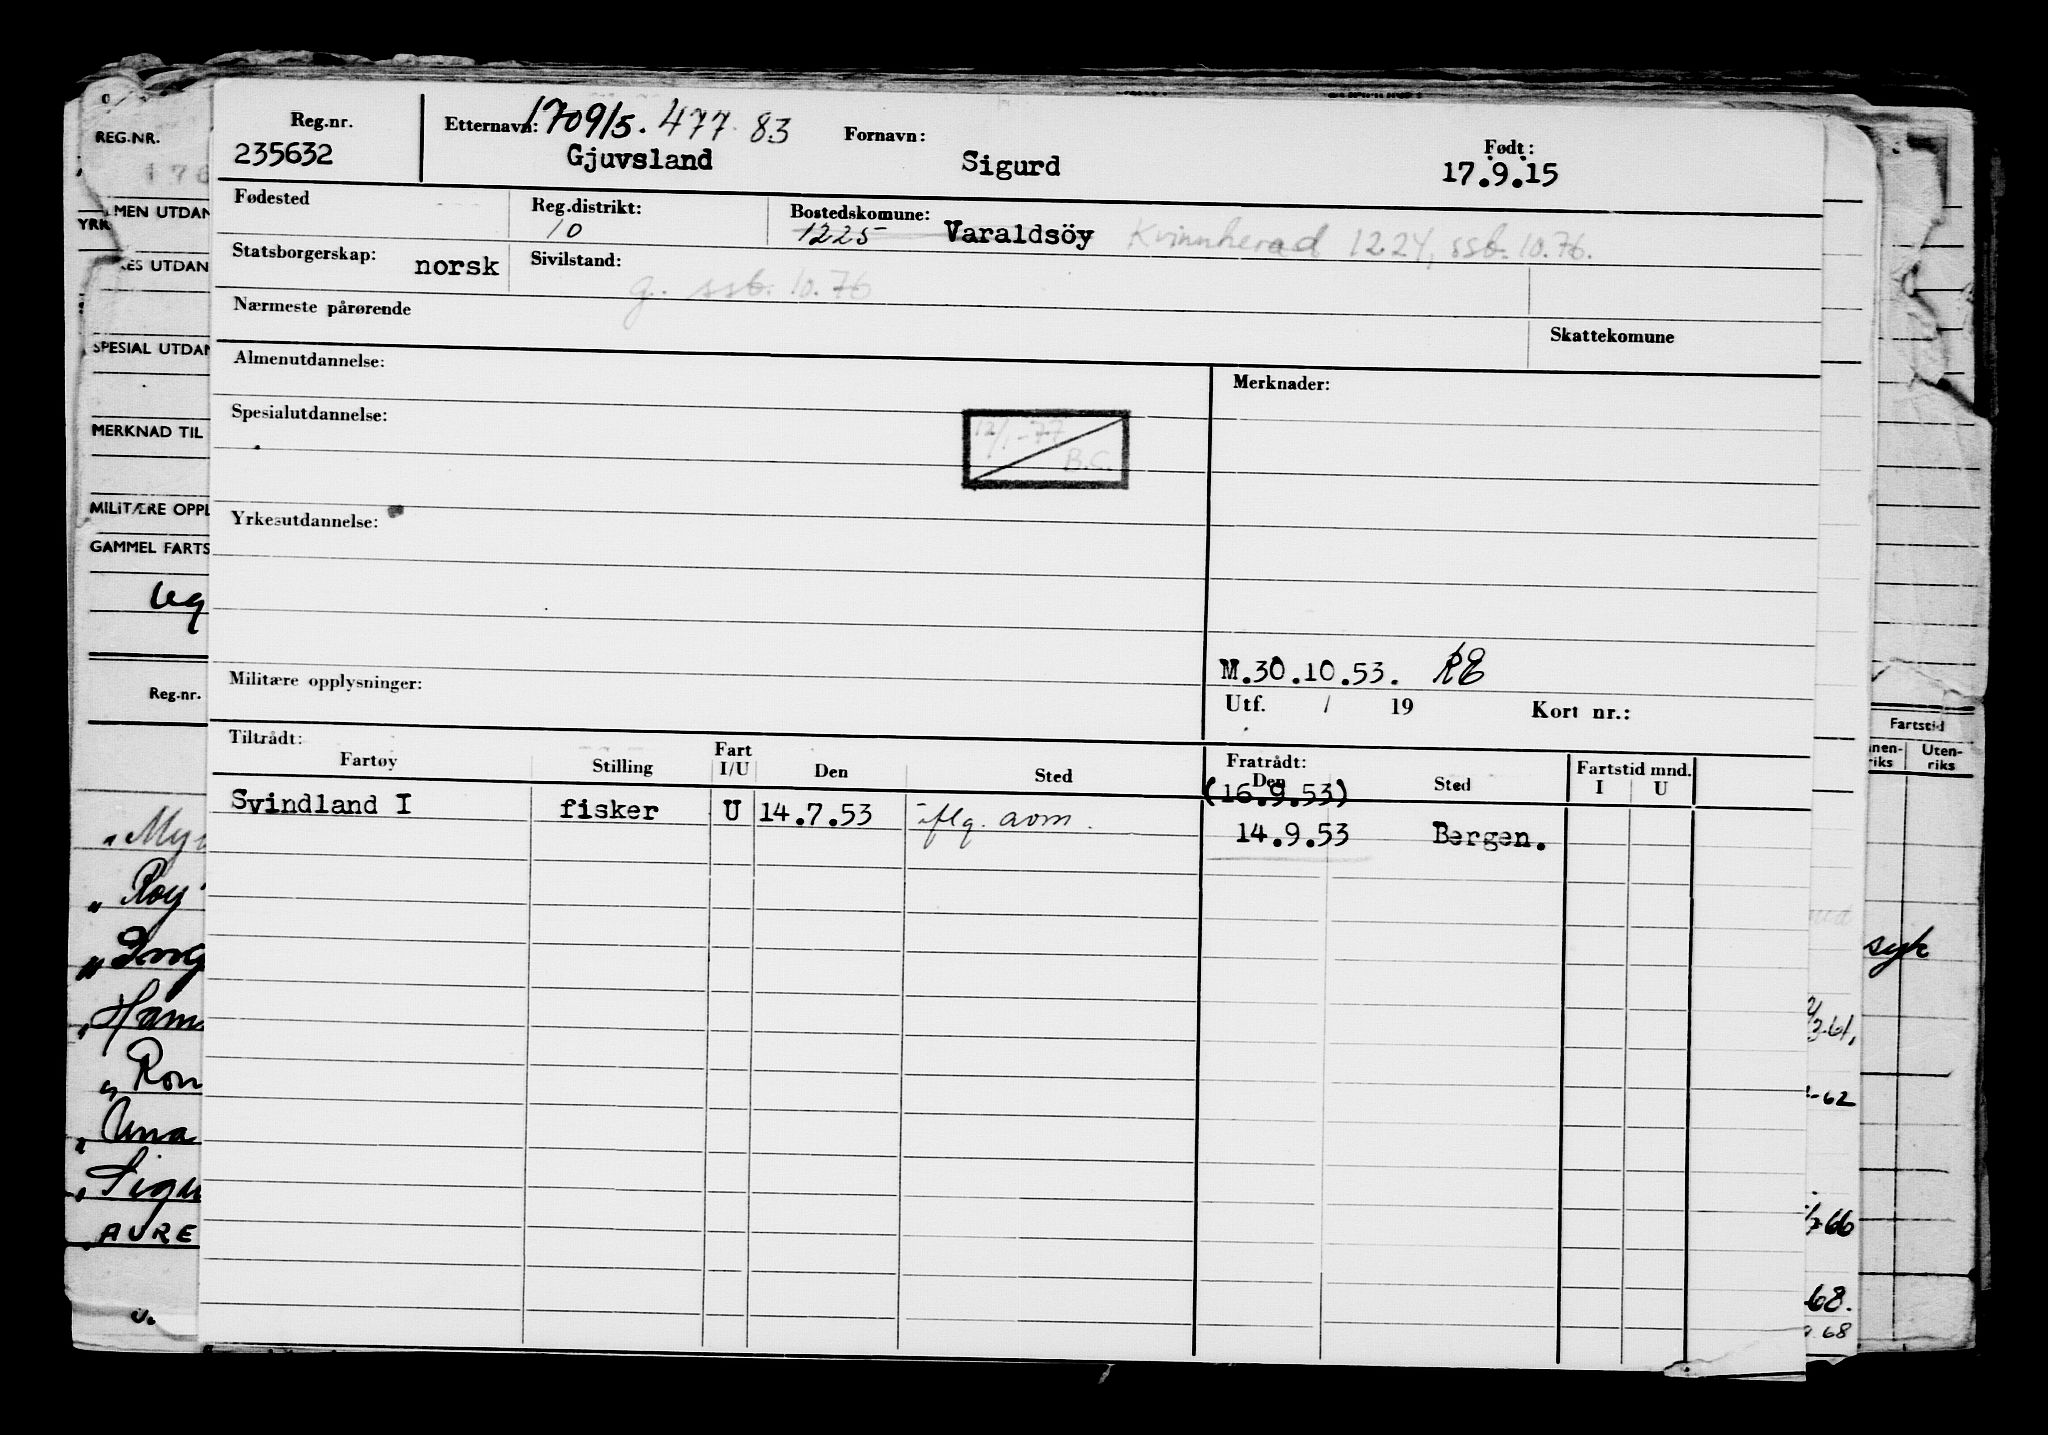 Reg.nr. Etternavn: 170915. 477 83 Fornavn: Født:
235632 Gjuvsland Sigurd 17.9.15
Fødested Reg.distrikt: 10 Bostedskomune: 1225 Varaldsöy Kvinnherad 1224, ssb. 10.76.
Statsborgerskap: norsk Sivilstand: g. ssb. 10.76
Nærmeste pårørende Skattekomune
Almenutdannelse: Merknader:
Spesialutdannelse:
12/1-77
B.C.
Yrkesutdannelse:
M.30.10.53. RE
Militære opplysninger: Utf. / 19 Kort nr.:
Tiltrådt: Fratrådt:
Fartøy Stilling Fart I/U Den Sted Den Sted Fartstid mnd. I U
(16.9.53)
Svindland I fisker U 14.7.53 iflg. avm. 14.9.53 Bergen.
REG.NR.
MEN UTDAN
YRK
ES UTDAN
SPESIAL UTDAN
MERKNAD TIL
MILITÆRE OPPL
GAMMEL FARTS
Reg.nr.
„Roy
„Ham
„Ron
„Una
„Sigu
„AURE
Fartstid
nen-riks Uten-riks
syk
3-61,
-62
-66
-68.
68